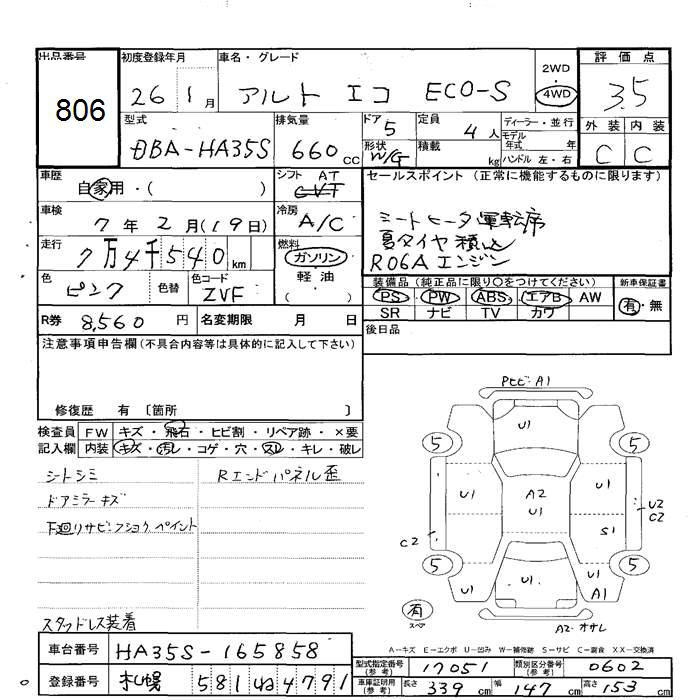 出品番号 初度登録年月 車名・グレード 2WD 4WD 評価点
806 26 1月 アルト エコ ECO-S 3.5
型式 排気量 ドア 5 定員 4人 ディーラー・並行 外装 内装
DBA-HA35S 660cc 形状 W/G 積載 kg モデル年式 年 C C
ハンドル 左・右
車歴 自家用・( ) シフト AT CVT セールスポイント (正常に機能するものに限ります)
車検 7年2月(19日) 冷房 A/C シートヒータ運転席
走行 7万4千540km 燃料 ガソリン 軽油 ( ) 夏タイヤ積込
R06Aエンジン
色 ピンク 色替 色コード ZVF 装備品(純正品に限り○をつけてください) 新車保証書
PS PW ABS エアB AW 有・無
SR ナビ TV カワ
R券 8,560円 名変期限 月 日 後日品
注意事項申告欄(不具合内容等は具体的に記入して下さい)
修復歴 有 〔箇所 〕
検査員 FW キズ・飛石・ヒビ割・リペア跡・×要
記入欄 内装 キズ・汚レ・コゲ・穴・スレ・キレ・破レ
シートシミ Rエンドパネル歪
ドアミラーキズ
下廻りサビ・フショク ペイント
スタッドレス装着
Pヒビ・A1
U1
5 5
U1 A2 U1 U1
U2 C2
C2 S1
5 5
U1 U1 U1 A1
有 スペア A2・オサレ
A-キズ E-エクボ U-凹み W-補修跡 S-サビ C-腐食 XX-交換済
車台番号 HA35S-165858
型式指定番号(参考) 17051 類別区分番号(参考) 0602
登録番号 札幌 581 ね 4791
車庫証明用(参考) 長さ 339cm 幅 147cm 高さ 153cm